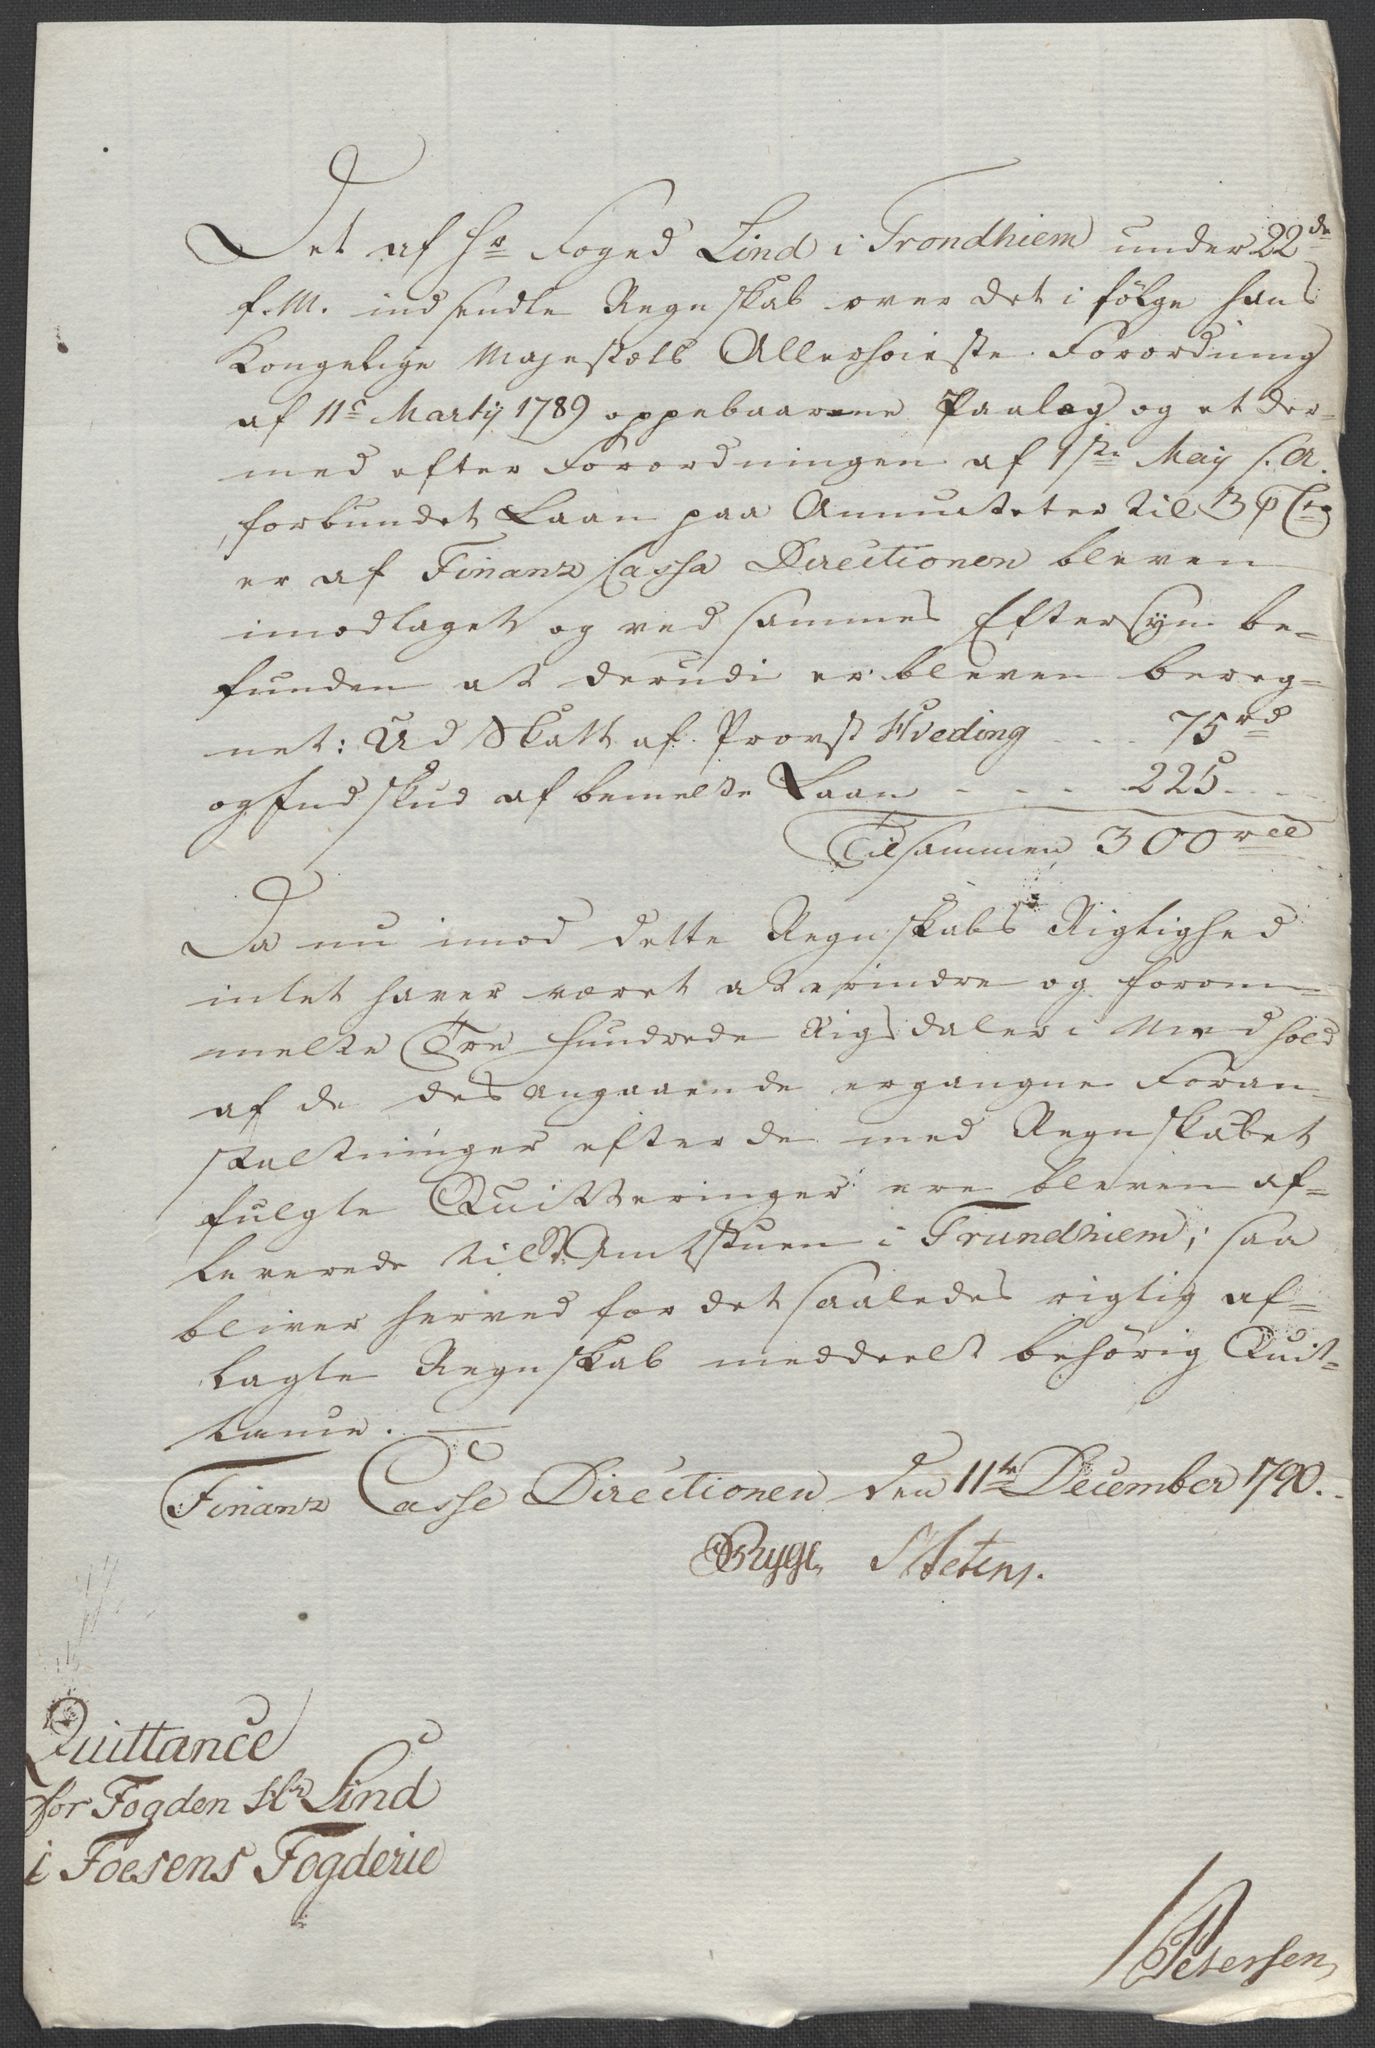 Det af Hr Foged Lind i Trondhiem under 22de
f. M. indsendte Regnskab over det i følge Hans
Kongelige Majestæts Allerhøieste Forordning
af 11e Martij 1789 oppebaarne Paalæg og et der-
med efter Forordningen af 1ste Maij s. A.
forbundet Laan paa Annuiteter til 3 p Cto
er af Finanz Cassa Directionen bleven
imodtaget og ved sammes Eftersyn be-
funden at derudi er bleven bereg-
net: Ud Skatt af Provst Hveding - - - 75 rd
og Indskud af bemelte Laan - - - 225 - -
Tilsammen 300 rdl
Da nu imod dette Regnskabs Rigtighed
intet haver været at erindre og forom-
melte Tre Hundrede Rigsdaler i Medhold
af de desangaaende ergangne Foran-
staltninger efter de med Regnskabet
fulgte Quitteringer ere bleven af-
leverede til Amtstuen i Trundhiem; saa
bliver herved for det saaledes rigtig af-
lagte Regnskab meddeelt behørig Quit-
tance. —
Finanz Casse Directionen den 11te December 1790.
Bryge,
Quittance
for Fogden Hr Lind
i Foesens Fogderie
Petersen